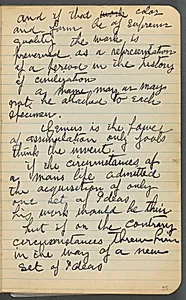 and if that color
and form be of supreme
quality the work is
preserved as a representation
of a period in the history
of civilization
a name may or may
not be attached to each
specimen.
is the
of assumption only fools
think they invent.
If the circumstances of
a mans life admitted
the acquisition of only
one set of Ideas
his work should be thin
but if on the contrary
circumstances threw him
in the way of a new
set of Ideas